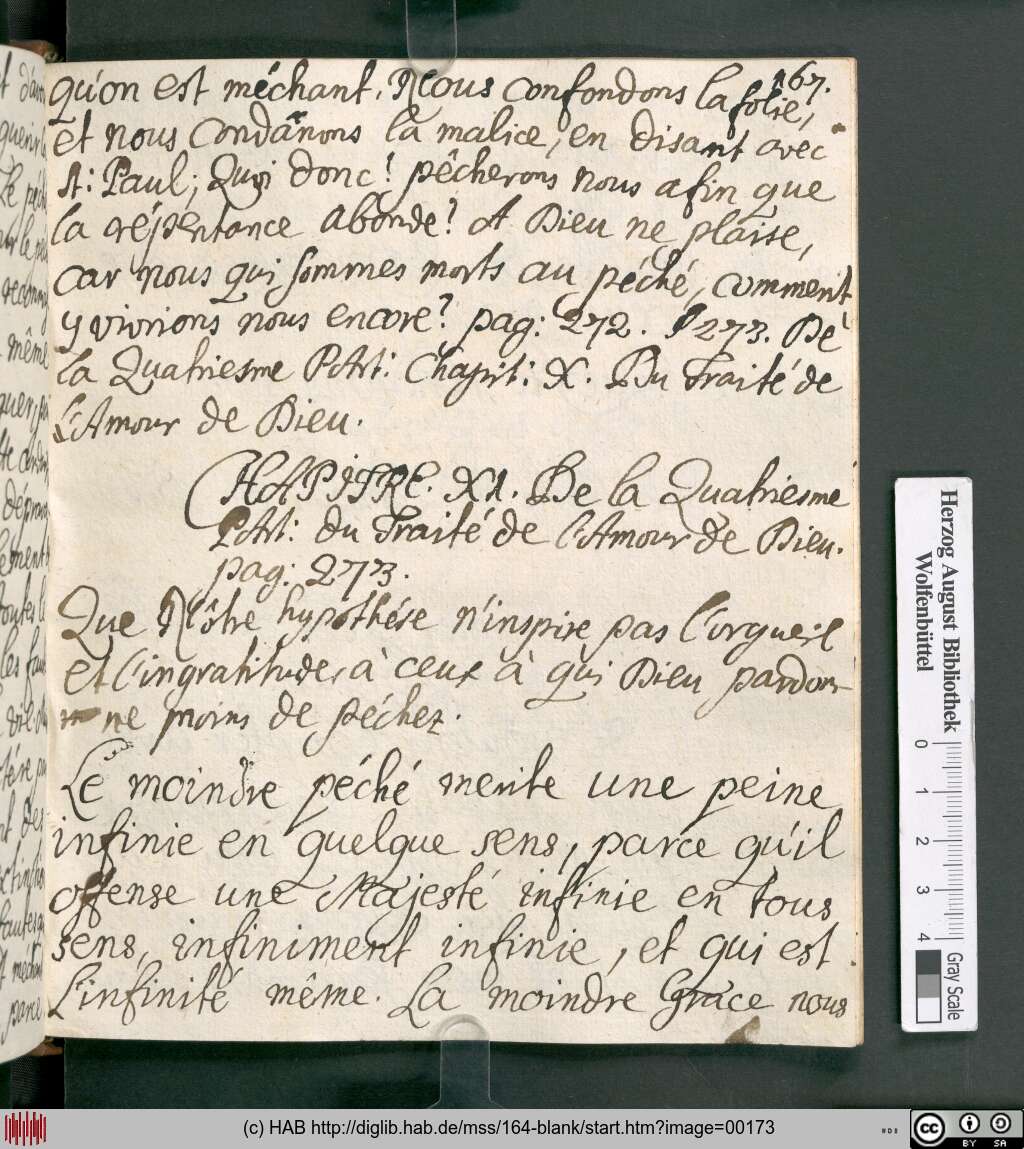 167.
qu'on est méchant. Nous confondons la folie,
et nous condam̃nons la malice, en disant avec
St: Paul; Quoi donc! pêcherons nous afin que
la répentance abonde? A Dieu ne plaise,
car nous qui sommes morts au péché, comment
y vivrions nous encore? pag: 272. 273. De
la Quatriesme PArt: Chapit: X. Du Traité de
l'Amour de Dieu.
CHAPITRE. XI. De la Quatriesme
PArt: du Traité de l'Amour de Dieu.
pag: 273.
Que Nôtre hypothése n'inspire pas l'orgueil
et l'ingratitude, à ceux à qui Dieu pardon-
ne moins de péchez.
Le moindre péché merite une peine
infinie en quelque sens, parce qu'il
offense une Majesté infinie en tous
sens, infiniment infinie, et qui est
L'infinité même. La moindre Grace nous
Herzog August Bibliothek
Wolfenbüttel
0 1 2 3 4
Gray Scale
(c) HAB http://diglib.hab.de/mss/164-blank/start.htm?image=00173
cc BY SA